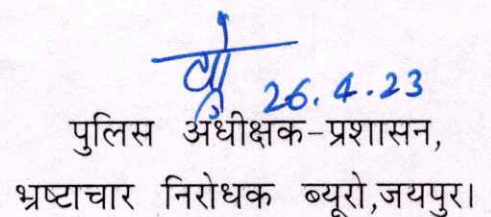 26.4.23
पुलिस अधीक्षक-प्रशासन,
भ्रष्टाचार निरोधक ब्यूरो,जयपुर।